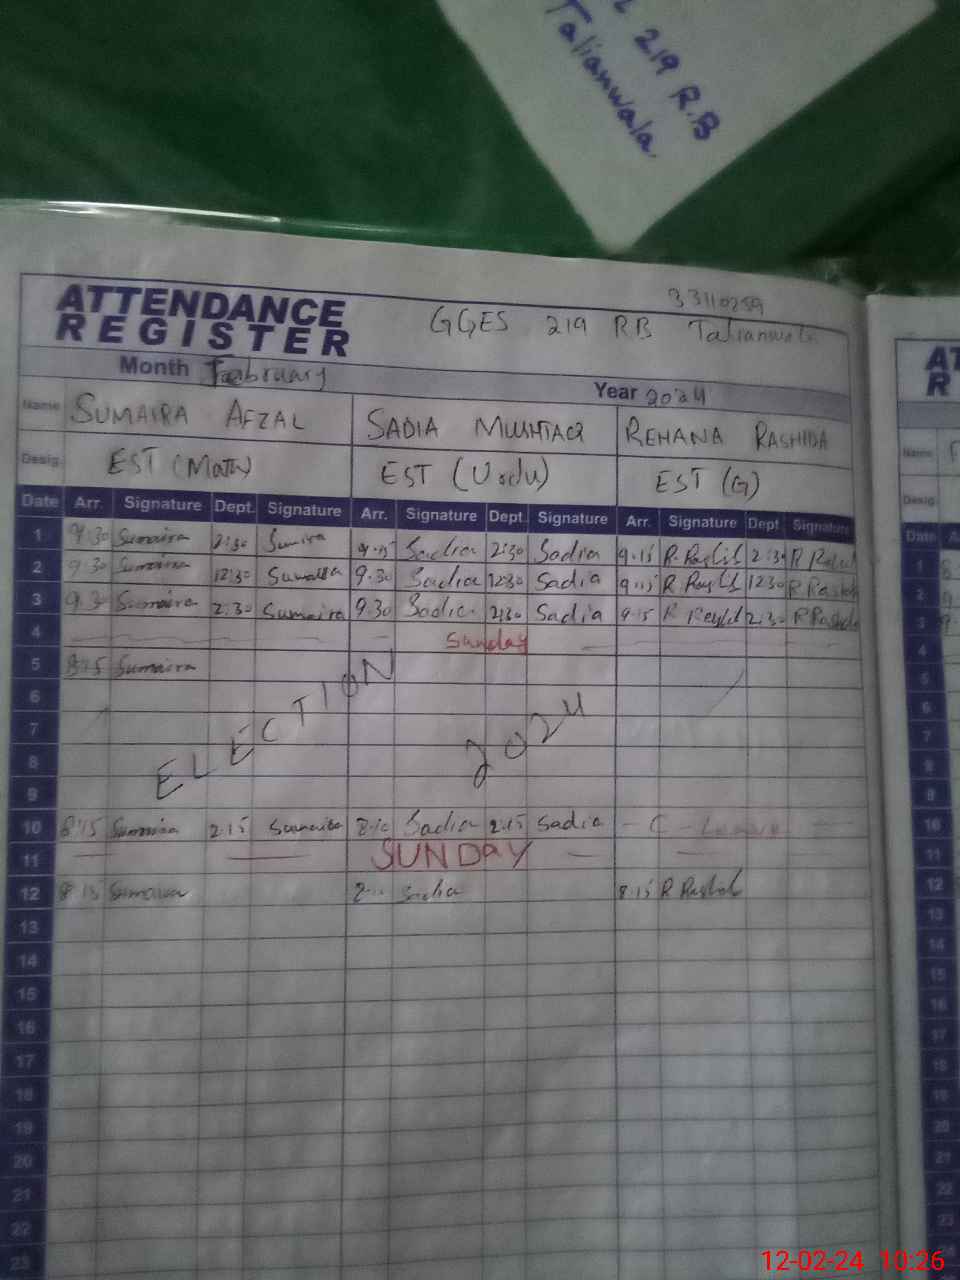 L 219 R.B
Talianwala
33110259
ATTENDANCE
REGISTER
GGES 219 RB Talianwala
Month February
Year 2024
Name SUMAIRA AFZAL SADIA MUSHTAQ REHANA RASHIDA
Desig. EST (Math) EST (Urdu) EST (G)
Date Arr. Signature Dept. Signature Arr. Signature Dept. Signature Arr. Signature Dept. Signature
1 9:30 Sumaira 2:30 Sumira 9.15 Sadia 2:30 Sadia 9.15 R 2:30 R
2 9.30 Sumaira 12:30 Sumaira 9.30 Sadia 12:30 Sadia 9.15 R 1230 R Rashda
3 9.30 Sumaira 2:30 Sumaira 9.30 Sadia 2:30 Sadia 9.15 R 2:30 R Rashda
4 Sunday
5 8:45 Sumaira
6
7
8
9
ELECTION 2024
10 8:15 Sumaira 2:15 Sumaira 8:10 Sadia 2:15 Sadia - C - Leave
11 SUNDAY
12 8:15 Sumaira Sadia 8.15 R
13
14
15
16
17
18
19
20
21
22
23
AT
R
Name
Desig
Date A
1
2
3
4
5
6
7
8
9
10
11
12
13
14
15
16
17
18
19
20
21
22
23
24
12-02-24 10:26